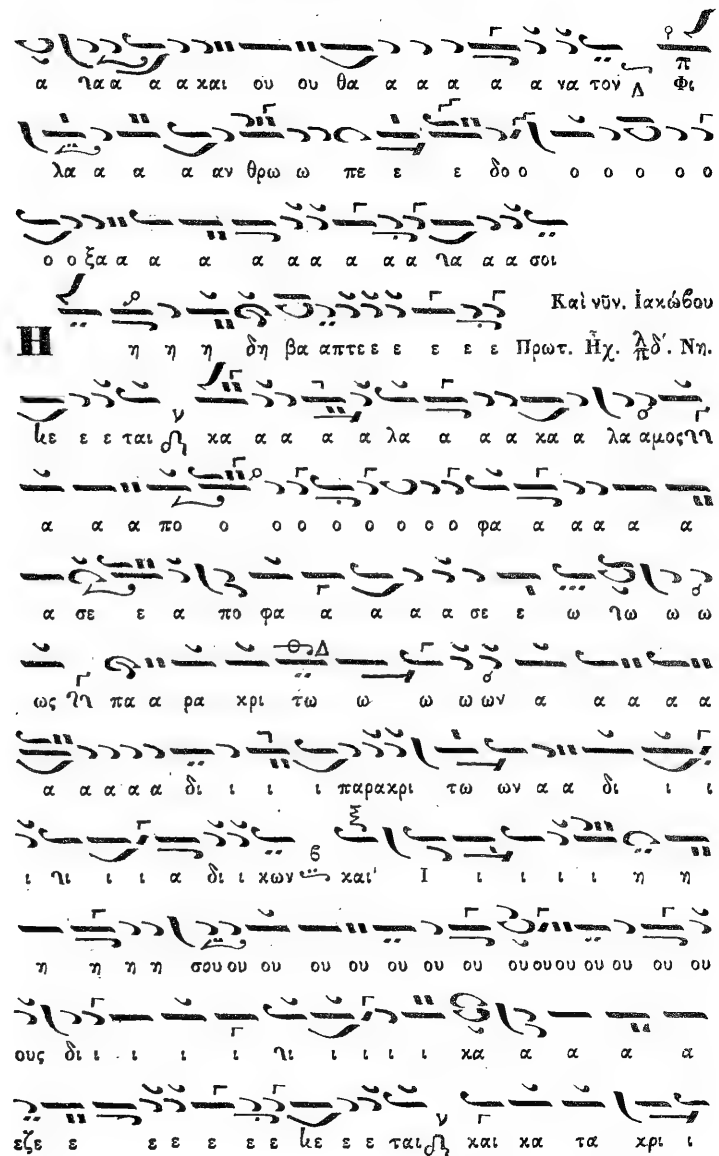 α γαα α α και ου ου θα α α α α α να τον Δ π Φι
λα α α α αν θρω ω πε ε ε δο ο ο ο ο ο ο
ο ο ξα α α α α α α α α α γα α α σοι
Καὶ νῦν. Ἰακώβου
Η η η η δη βα απτε ε ε ε ε ε Πρωτ. Ἦχ. λ π δ´. Νη.
κε ε ε ται ν κα α α α α λα α α α κα α λα αμος
α α α α πο ο ο ο ο ο ο ο ο ο φα α α α α α α
α σε ε α πο φα α α α α α σε ε ω γω ω ω
ως πα α ρα κρι τω ω ω ω ων α α α α α
α α α α α δι ι ι ι παρακρι τω ων α α δι ι ι
ι γι ι ι α δι ι κων β και Ι ι ι ι ι η η
η η η η σου ου ου ου ου ου ου ου ου ου ου ου ου ου ου
ους δι ι ι ι ι γι ι ι ι ι κα α α α α
εζε ε ε ε ε ε ε ε κε ε ε ται ν και κα τα κρι ι